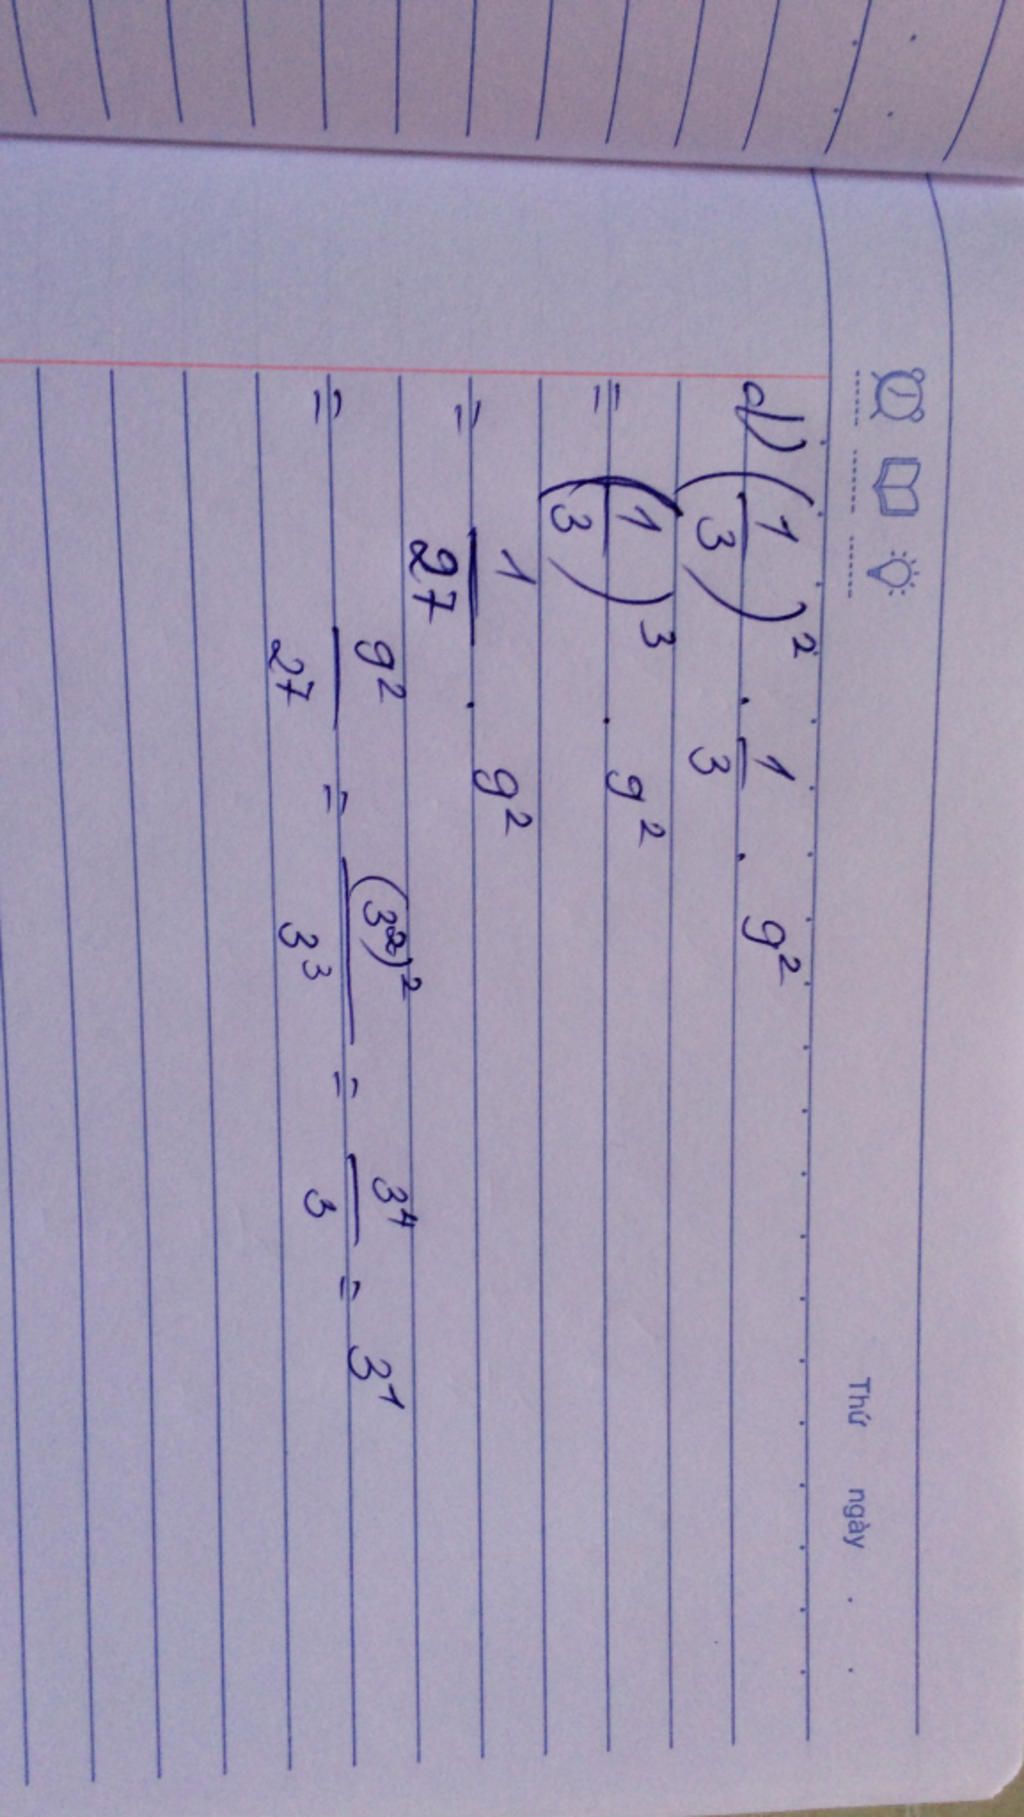 Thứ ngày . .
d) (1/3)² . 1/3 . 9²
= (1/3)³ . 9²
= 1/27 . 9²
= 9²/27 = (3²)²/3³ = 3⁴/3 = 3¹